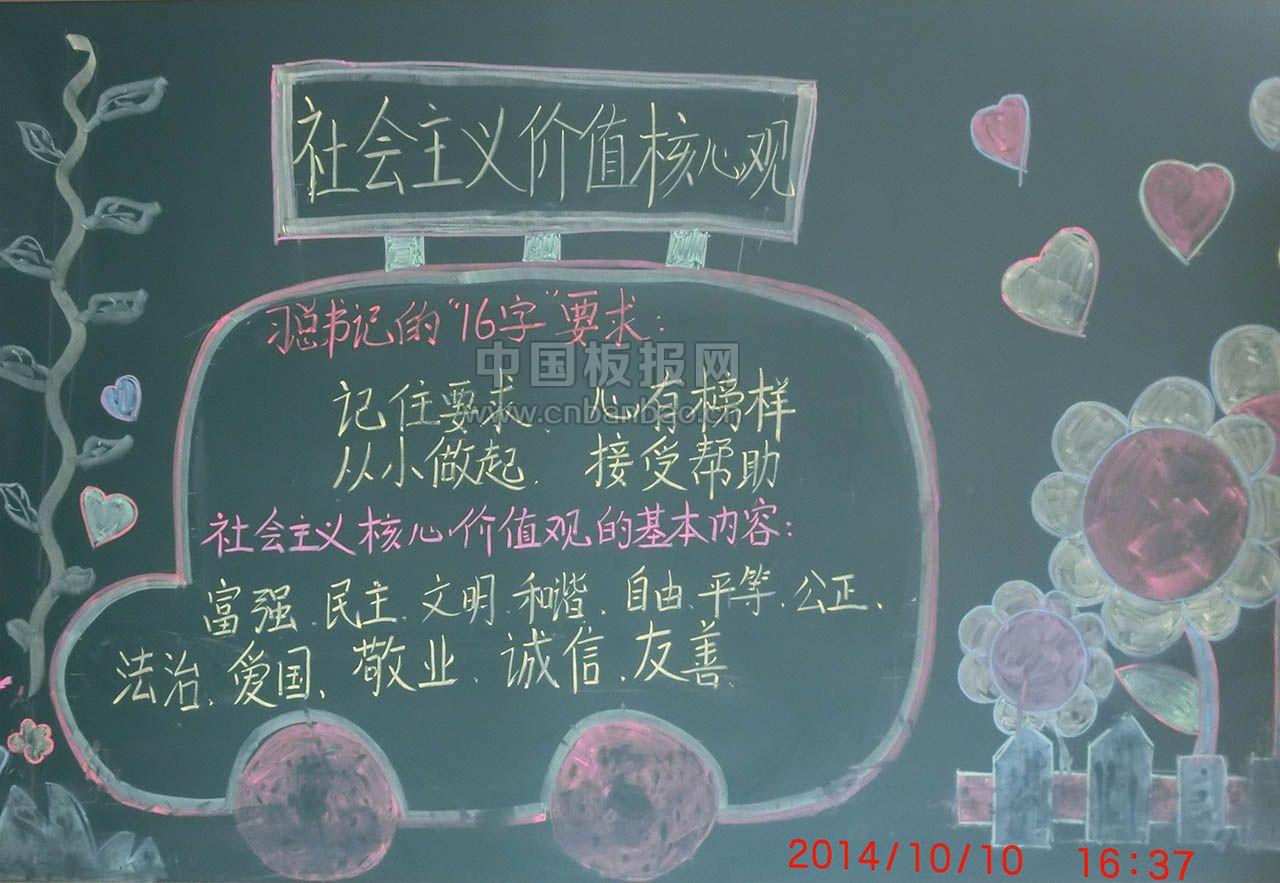 社会主义价值核心观
习总书记的“16字”要求：
中国板报网
记住要求、心有榜样
www.cnbanbao.cn
从小做起、接受帮助
社会主义核心价值观的基本内容：
富强、民主、文明、和谐、自由、平等、公正、
法治、爱国、敬业、诚信、友善、
2014/10/10 16:37